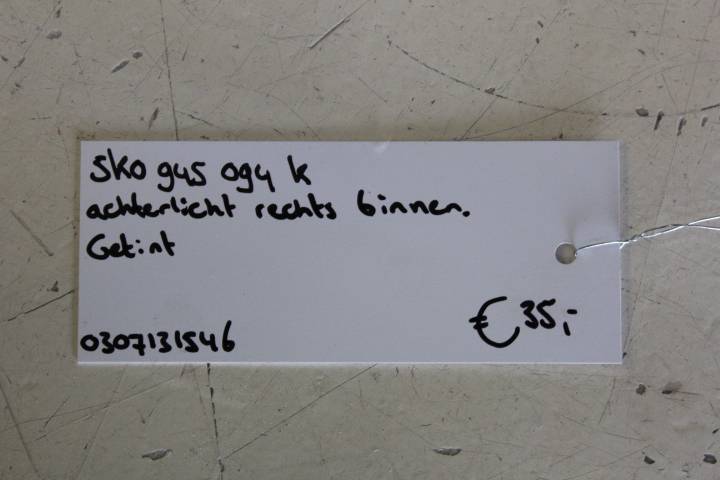 5K0 945 094 K
achterlicht rechts binnen.
Getint
0307131546
€35,-